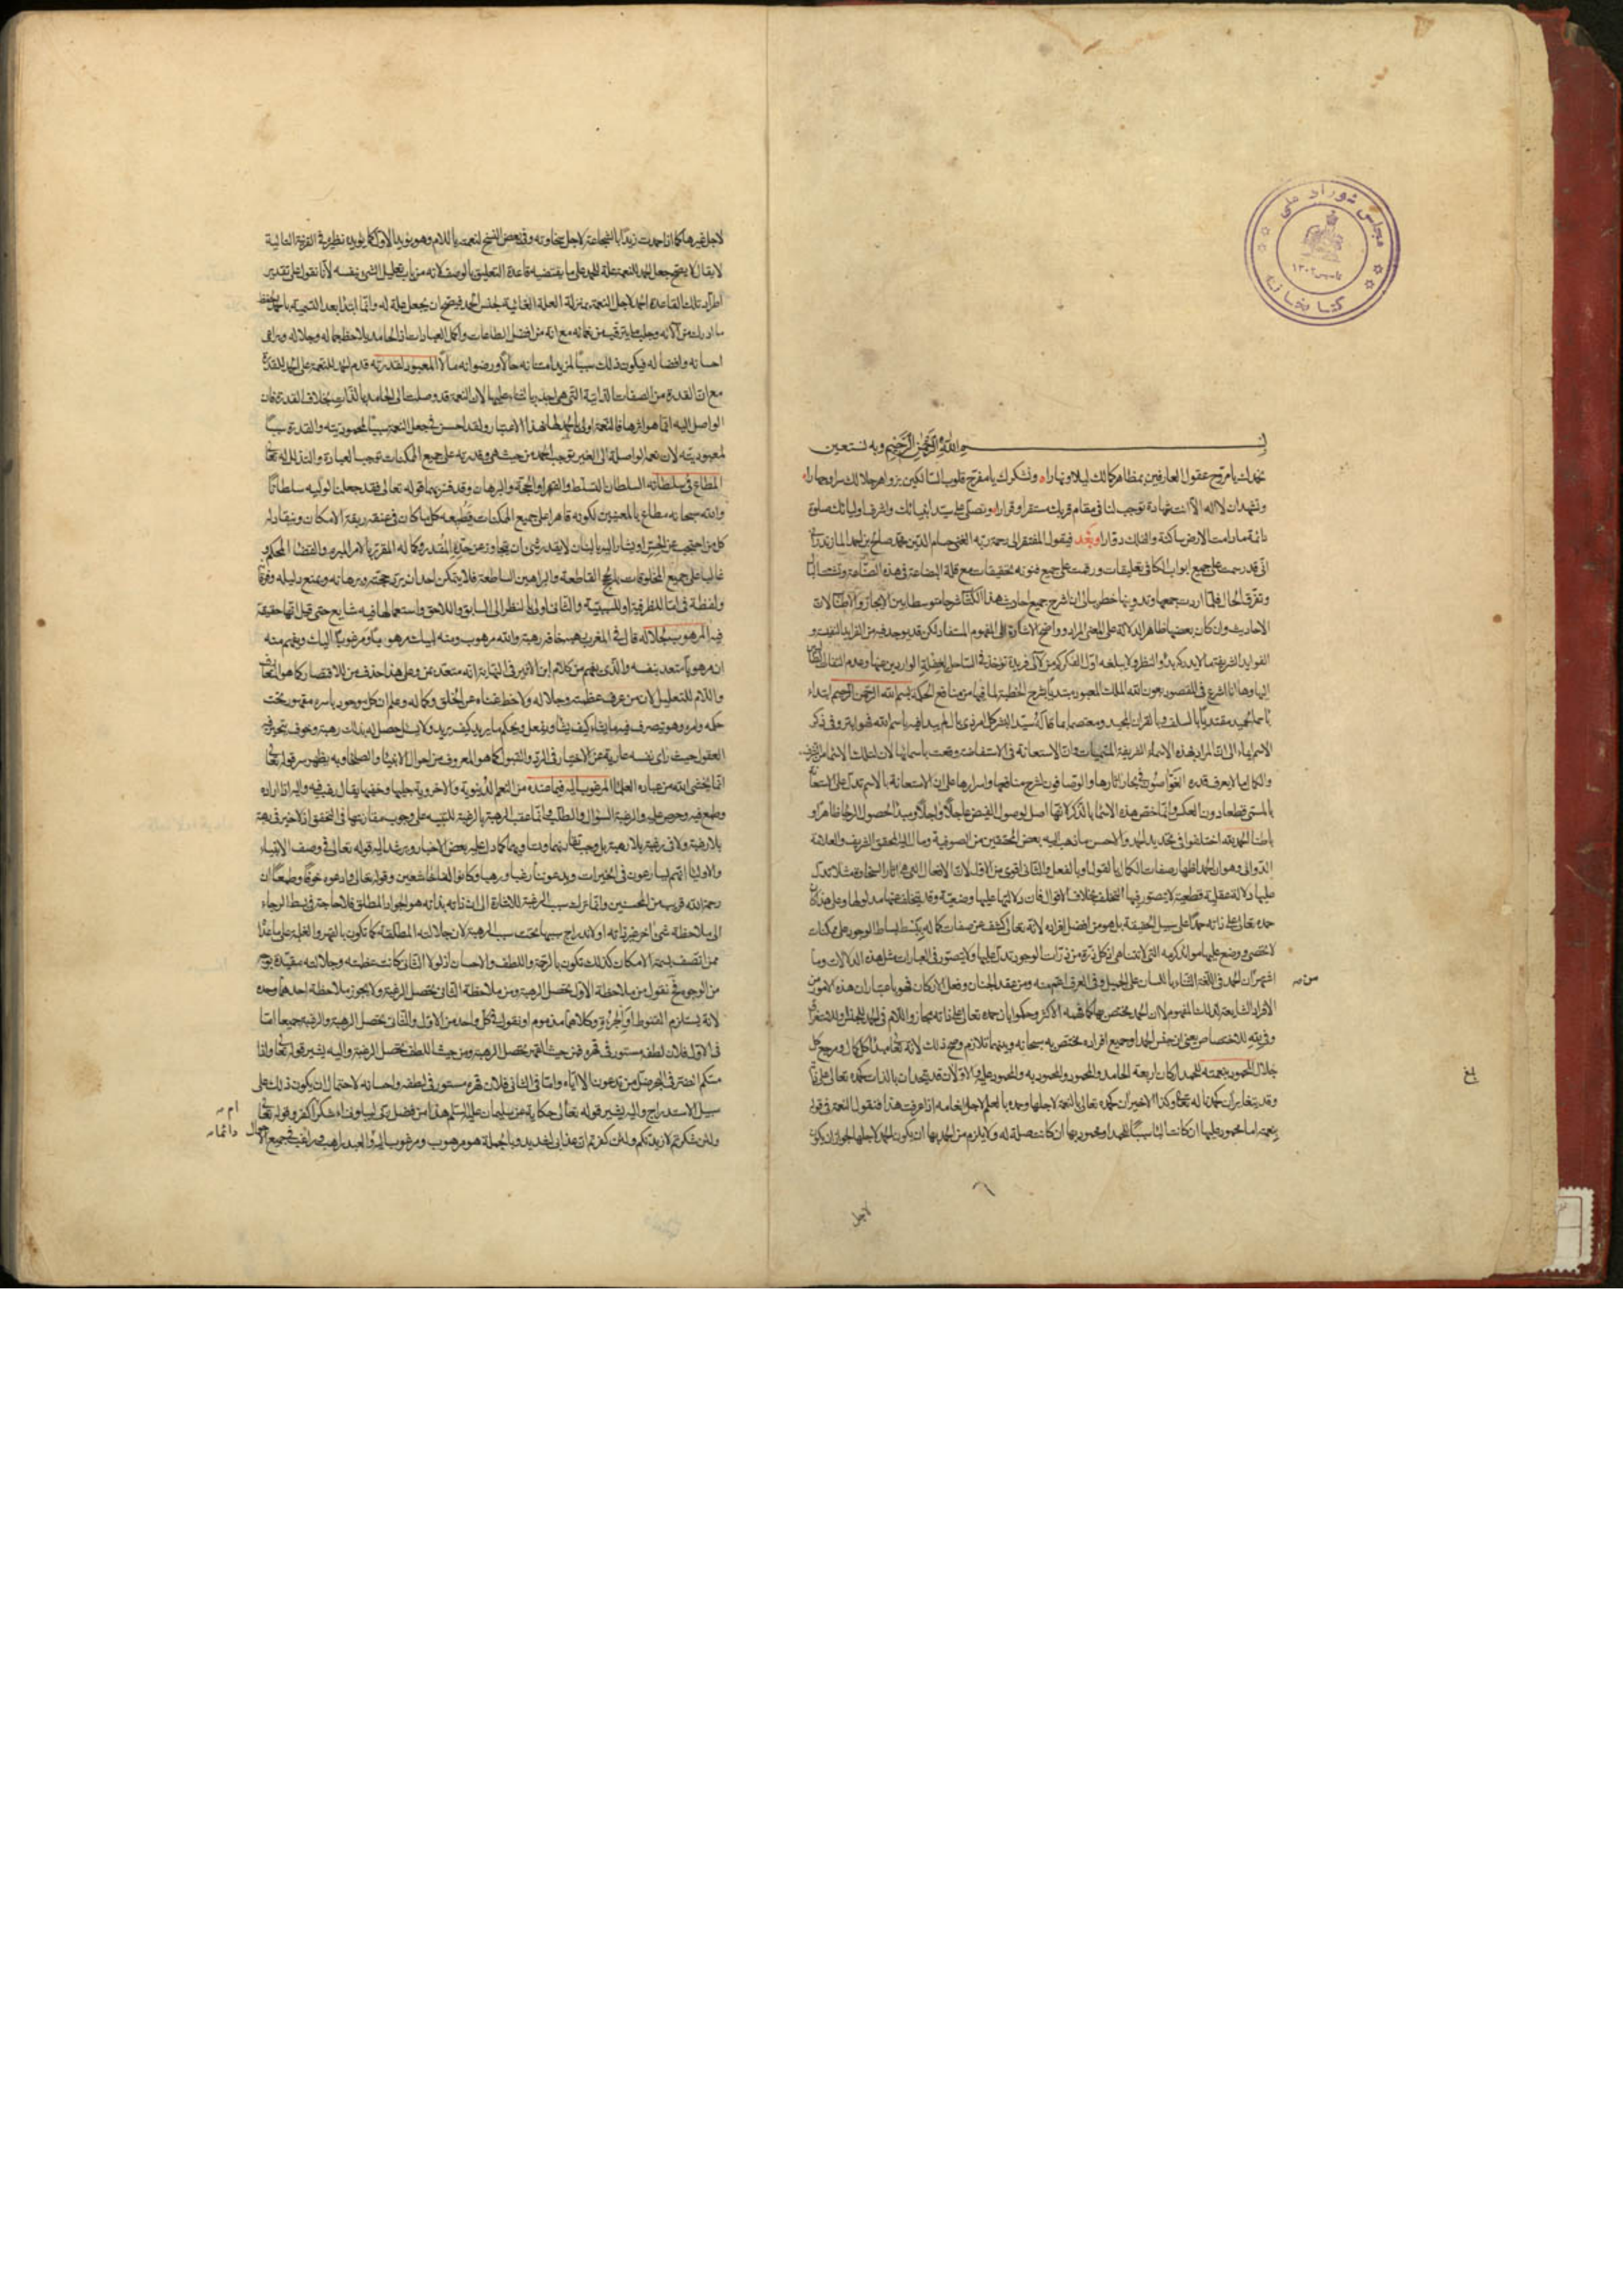 مجلس شورای ملی
تاسیس ۱۳۰۲
کتابخانه
بسم الله الرحمن الرحيم وبه نستعين
نحمدك يا مروح عقول العارفين بمظاهر كمالك ليلا ونهارا ونشكرك يا مفرج قلوب السالكين بزواهر جلالك سرا وجهارا
ونشهد ان لا اله الا انت شهادة توجب لنا في مقام قربك مستقرا وقرارا ونصلي على سيد انبيائك واشرف اوليائك صلوة
دائمة ما دامت الارض ساكنة والفلك دوارا وبعد فيقول المفتقر الى رحمة ربه الغني حسام الدين محمد صالح بن احمد المازندراني
اني قد رسمت على جميع ابواب الكافي تعليقات ورقمت على جميع فنونه تحقيقات مع قلة البضاعة في هذه الصناعة وتشتت البال
وتفرق الحال فلما اردت جمعها وتدوينها خطر ببالي ان اشرح جميع احاديث هذا الكتاب شرحا متوسطا بين الايجاز والاطناب لان
الاحاديث وان كان بعضها ظاهر الدلالة على المعنى المراد وواضح الاشارة الى المفهوم المستفاد لكن قد يوجد فيه من الفرايد النفيسة و
الفوايد الشريفة ما لا يدركه بدو النظر ولا يبلغه اول الفكر
اليها وها انا اشرع في المقصود بعون الله الملك المعبود مبتديا بشرح الخطبة لما فيها من منافع الحكمة بسم الله الرحمن الرحيم ابتداء
باسمائه مقتديا بالسلف وبالقران المجيد ومعتصما بما قاله سيد البشر كل امر ذي بال لم يبدا فيه باسم الله فهو ابتر وفي ذكر
الاسم ايماء الى ان المراد بهذه الاسماء الشريفة المسميات وان الاستعانة في الاستفاضة وقعت باسمائها
والكمال مما لا يعرف قدره الغواصون في بحار اثارها والوصافون لشرح منافعها واسرارها على ان الاستعانة بالاسم تدل على الاستعانة
بالمسمى قطعا دون العكس وانما خص هذه الاسماء بالذكر لانها اصل لوصول الفيض عاجلا واجلا ومبدا لحصول الرجا ظاهرا و
باطنا الحمد لله اختلفوا في تحديد الحمد والاحسن ما ذهب اليه بعض المحققين من الصوفية ومال اليه المحقق الشريف والعلامة
الدواني وهو ان الحمد اظهار صفات الكمال بالقول او بالفعل والثاني اقوى من الاول لان الافعال التي هي اثار السخاوة مثلا تدل
عليها دلالة عقلية قطعية لا يتصور فيها التخلف بخلاف الاقوال فان دلالتها عليها وضعية وقد يتخلف عنها مدلولها وعلى هذا كان
حمده تعالى على ذاته حمدا على سبيل الحقيقة بل هو من افضل افراده لانه تعالى كشف عن صفات كماله ببسط بساط الوجود على ممكنات
لا تحصى ووضع عليها موائد كرمه التي لا تتناهى اذ كل ذرة من ذرات الوجود تدل عليها ولا يتصور في العبارات مثل هذه الدلالات وما
اشتهر ان الحمد في اللغة الثناء باللسان على الجميل وفي العرف اعم منه ومن عقد الجنان وفعل الاركان فهو باعتبار ان هذه الامور من
الافراد الشايعة لذلك المفهوم لا ان الحمد مختص بها
وفي لله للاختصاص يعني ان جنس الحمد او جميع افراده مختص به سبحانه وبينهما تلازم وصح ذلك لانه تعالى مبدا كل كمال ومرجع كل
جلال المحمود بنعمته للحمد اركان اربعة الحامد والمحمود والمحمود به والمحمود عليه والاولان قد يتحدان بالذات كحمده تعالى على ذاته
وقد يتغايران كحمدنا له تعالى وكذا الاخيران كحمده تعالى بالنعمة لاجلها وحمده بالعلم لاجل انعامه اذا عرفت هذا فنقول النعمة في قوله
بنعمته اما محمود عليها ان كانت الباء سببا للحمد او محمود بها ان كانت صلة له ولا يلزم من الحمد بها ان يكون الحمد لاجلها لجواز ان يكون
لاجل
لاجل غيرها كما اذا حمدت زيدا بالشجاعة لاجل سخاوته وفي بعض النسخ لنعمته باللام وهو يؤيد الاول كما يؤيده نظيره في القرينة الثانية
لا يقال لا يصح جعل الحمد للنعمة علة للحمد على ما يقتضيه قاعدة التعليق بالوصف لانه من باب تعليل الشيء بنفسه لانا نقول على تقدير
اطراد تلك القاعدة الحمد لاجل النعمة بمنزلة العلة الغائية لجنس الحمد فيصح ان يجعل علة له وانما ابتدا بعد التسمية بالحمد
مع انه من افضل الطاعات واكمل العبادات اذ الحامد يلاحظ جماله وجلاله ويراعي
احسانه وافضاله فيكون ذلك سببا لمزيد امتنانه حالا ورضوانه مالا المعبود لقدرته قدم الحمد للنعمة على الحمد للقدرة
مع ان القدرة من الصفات الذاتية التي هي اجدر بالثناء عليها لان النعمة قد وصلت الى الحامد بالذات بخلاف القدرة فان
الواصل اليه انما هو اثرها فالنعمة اولى بالحمد لها بهذا الاعتبار ولقد احسن في جعل النعمة سببا لمحموديته والقدرة سببا
لمعبوديته لان نعمه الواصلة الى الغير توجب الحمد من حيث هي وقدرته على جميع الممكنات توجب العبادة والتذلل له تعالى
المطاع في سلطانه السلطان التسلط والقهر او الحجة والبرهان وقد فسر بهما قوله تعالى فقد جعلنا لوليه سلطانا
والله سبحانه مطاع بالمعنيين لكونه قاهرا على جميع الممكنات فيطيعه كل ما كان في عنقه ربقة الامكان وينقاد له
كل من احتجب عن الحس او يشار اليه بالبنان لا يقدر شيء ان يتجاوز عن حده المقدر وكماله المقرر بالامر المبرم والقضاء المحكم و
غالبا على جميع المخلوقات بالحجج القاطعة والبراهين الساطعة فلا يتمكن احد ان يرد حجته وبرهانه ويمنع دليله وفرقانه
ولفظة في اما للظرفية او للسببية والثاني اولى بالنظر الى السابق واللاحق واستعمالها فيه شايع حتى قيل انها حقيقة
فيه المرهوب لجلاله قال في المغرب رهبه خافه رهبة والله مرهوب ومنه لبيك مرهوب ومرغوب اليك ويفهم منه
ان مرهوبا متعد بنفسه والذي يفهم من كلام ابن الاثير في النهاية انه متعد بمن وعلى هذا حذف من للاقتصار كما هو الشايع
واللام للتعليل لان من عرف عظمته وجلاله ولاحظ غناه عن الخلق وكماله وعلم ان كل موجود باسره مقهور تحت
حكمه وامره وهو يتصرف فيه ما يشاء كيف يشاء ويفعل ويحكم ما يريد كيف يريد ولا يسئل حصل له بذلك رهبة وخوف تتحير فيه
العقول حيث راى نفسه عارية عن الاختيار في الرد والقبول كما هو المعروف من احوال الانبياء والصلحاء وبه يظهر سر قوله تعالى
انما يخشى الله من عباده العلماء المرغوب اليه فيما عنده من النعم الدنيوية والاخروية جليها وخفيها يقال رغب فيه واليه اذا اراده
وطمع فيه وحرص عليه والرغبة السؤال والطلب وانما عقب الرهبة بالرغبة للتنبيه على وجوب مقارنتها في التحقق اذ لا خير في رهبة
بلا رغبة ولا في رغبة بلا رهبة بل وجب تقارنهما وتساويهما كما دل عليه بعض الاخبار ويرشد اليه قوله تعالى في وصف الانبياء
والاولياء انهم يسارعون في الخيرات ويدعوننا رغبا ورهبا وكانوا لنا خاشعين وقوله تعالى وادعوه خوفا وطمعا ان
رحمة الله قريب من المحسنين وانما ترك سبب الرغبة للاشارة الى ان ذاته بذاته هو الجواد المطلق فلا حاجة في بسط الرجاء
الى ملاحظة شيء اخر غير ذاته او لاندراج سببها تحت سبب الرهبة لان جلالته المطلقة كما تكون بالقهر والغلبة على ما عداه
ممن اتصف بسمة الامكان كذلك تكون بالرحمة واللطف والاحسان اذ لولا الثاني كانت عظمته وجلالته مقيدة بوجه
من الوجوه فح نقول من ملاحظة الاول تحصل الرهبة ومن ملاحظة الثاني تحصل الرغبة ولا يجوز ملاحظة احدهما وحده
لانه يستلزم القنوط او الجرءة وكلاهما مذموم او نقول في كل واحد من الاول والثاني تحصل الرهبة والرغبة جميعا اما
في الاول فلان لطفه مستور في قهره فمن حيث القهر تحصل الرهبة ومن حيث اللطف تحصل الرغبة واليه يشير قوله تعالى واذا
مسكم الضر في البحر ضل من تدعون الا اياه واما في الثاني فلان قهره مستور في لطفه واحسانه لاحتمال ان يكون ذلك على
سبيل الاستدراج واليه يشير قوله تعالى حكاية عن سليمان عليه السلم هذا من فضل ربي ليبلوني ءاشكر ام اكفر وقوله تعالى
ولئن شكرتم لازيدنكم ولئن كفرتم ان عذابي لشديد وبالجملة هو مرهوب ومرغوب اليه والعبد راهب وراغب في جميع الاحوال